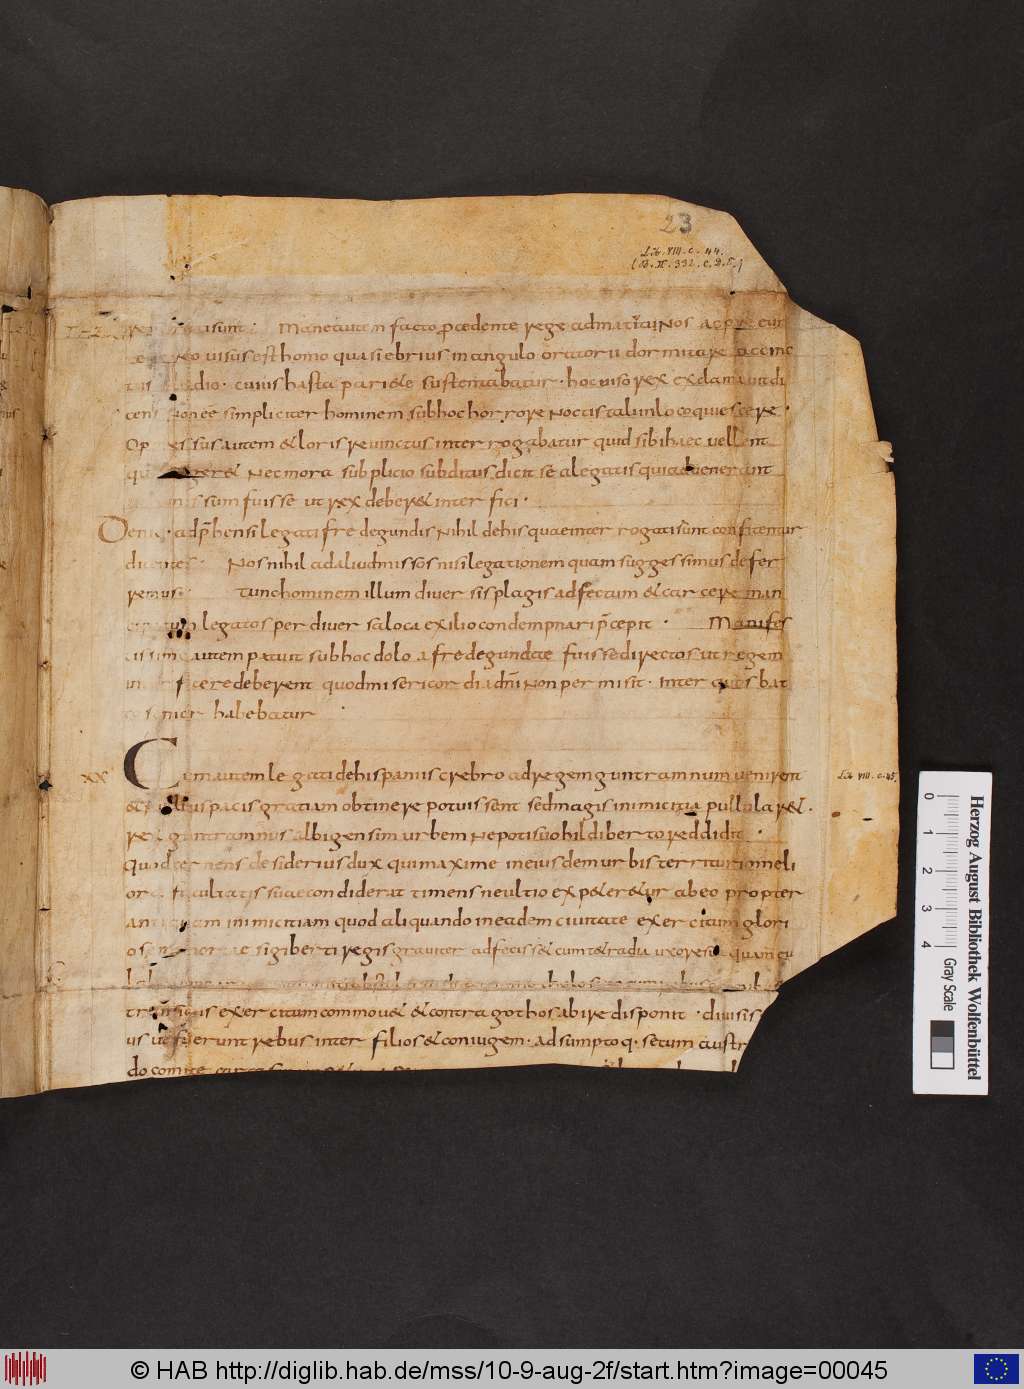 23
Lib. VIII. c. 44.
(B. II. 332. c. D. E.)
sunt. Mane autem facto p̄cedente rege ad matutinos
visus est homo quasi ebrius in angulo oratorii dormitare accinc
tus gladio. cuius hasta pariete sustentabatur. hoc viso rex exclamavit di
cens non ee simpliciter hominem sub hoc horrore noctis tali in loco quiescere.
Op autem & loris revinctus interrogabatur quid sibi haec vellent
Nec mora subplicio subditus dicit se a legatis qui advenerant
sum fuisse ut rex deber& interfici.
Deniq. adp̄hensi legati fredegundis nihil de his quae interrogati sunt confitentur
dicentes. Nos nihil ad aliud missos nisi legationem quam suggessimus defer
remus. Tunc hominem illum diversis plagis adfectum & carcere man
cipatum legatos per diversa loca exilio condempnari p̄cepit. Manifes
tissime autem patuit sub hoc dolo a fredegunde fuisse directos ut regem
interficere deberent quod misericordia dn̄i non permisit. Inter quos bat
senior habebatur
XX Cum autem legati de hispaniis crebro ad regem guntramnum venirent
& pacis gratiam obtinere potuissent sed magis inimicitia pullular&.
Lib VIII. c. 45
rex guntramnus albigensim urbem Nepoti suo hildiberto reddidit.
Quod cernens desiderius dux qui maxime in eiusdem urbis territurio meli
ora facultatis suae condiderat timens ne ultio expeteretur ab eo propter
antiquam inimicitiam quod aliquando in eadem civitate exercitum glori
osae memoriae sigiberti regis graviter adfeciss& cum t&radia uxore sua quam
transiens exercitum commov& & contra gothos abire disponit. divisis
ut ferunt rebus inter filios & coniugem. adsumptoq. secum austr
do comite
Herzog August Bibliothek Wolfenbüttel
Gray Scale
0 1 2 3 4
© HAB http://diglib.hab.de/mss/10-9-aug-2f/start.htm?image=00045